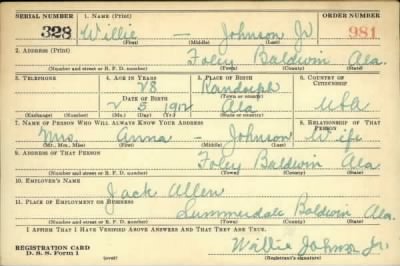 SERIAL NUMBER 1. NAME (Print) ORDER NUMBER
328 Willie — Johnson Jr 981
(First) (Middle) (Last)
2. ADDRESS (Print)
Foley Baldwin Ala.
(Number and street or R. F. D. number) (Town) (County) (State)
3. TELEPHONE 4. AGE IN YEARS 5. PLACE OF BIRTH 6. COUNTRY OF CITIZENSHIP
28 Randolph
DATE OF BIRTH (Town or county)
2 5 1912 Ala USA
(Exchange) (Number) (Mo.) (Day) (Yr.) (State or country)
7. NAME OF PERSON WHO WILL ALWAYS KNOW YOUR ADDRESS 8. RELATIONSHIP OF THAT PERSON
Mrs. Anna — Johnson Wife
(Mr., Mrs., Miss) (First) (Middle) (Last)
9. ADDRESS OF THAT PERSON
Foley Baldwin Ala
(Number and street or R. F. D. number) (Town) (County) (State)
10. EMPLOYER'S NAME
Jack Allen
11. PLACE OF EMPLOYMENT OR BUSINESS
Summerdale Baldwin Ala.
(Number and street or R. F. D. number) (Town) (County) (State)
I AFFIRM THAT I HAVE VERIFIED ABOVE ANSWERS AND THAT THEY ARE TRUE.
REGISTRATION CARD Willie Johnson Jr.
D. S. S. Form 1 (over) (Registrant's signature)